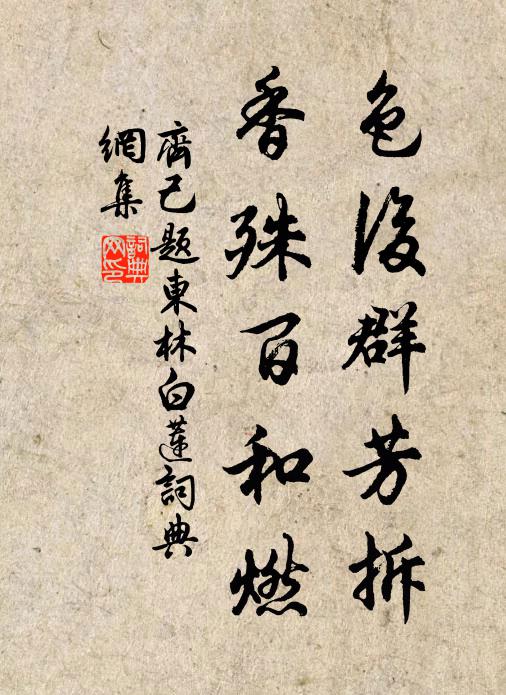 色後群芳拆
香殊百和燃
齊己題東林白蓮詞典
網集
詞典
网印